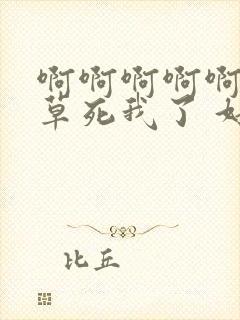 啊啊啊啊啊
草死我了
比丘